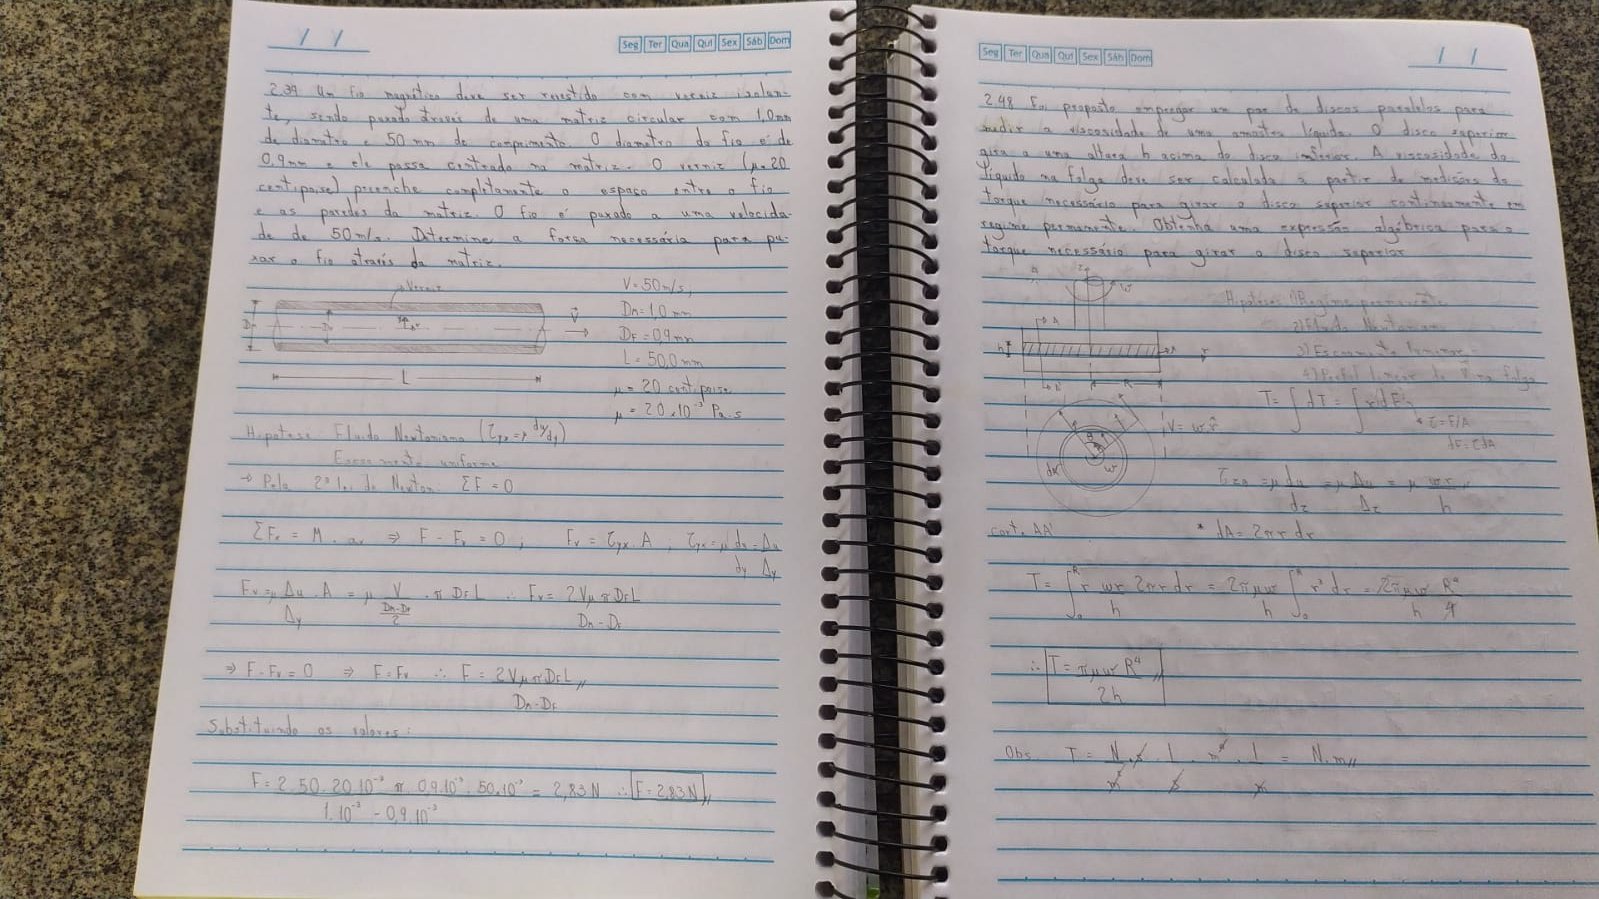 / /
Seg Ter Qua Qui Sex Sáb Dom
2.39 Um fio magnético deve ser revestido com verniz isolan-
te, sendo puxado através de uma matriz circular com 1,0mm
de diâmetro e 50 mm de comprimento. O diâmetro do fio é de
0,9mm e ele passa centrado na matriz. O verniz (μ=20
centipoise) preenche completamente o espaço entre o fio
e as paredes da matriz. O fio é puxado a uma velocida-
de de 50m/s. Determine a força necessária para pu-
xar o fio através da matriz.
Verniz
V = 50m/s;
Dm = 1,0 mm
DF = 0,9mm
L = 50,0mm
μ = 20 centipoise
μ = 20.10⁻³ Pa.s
L
Hipótese: Fluido Newtoniano (τyx = μ du/dy)
Escoamento uniforme
→ Pela 2ª lei de Newton ΣF = 0
ΣFx = M . ax ⇒ F - Fv = 0 ; Fv = τyx . A ; τyx = μ du/dy = Δu/Δy
Fv = μ Δu/Δy . A = μ V/((Dm-DF)/2) . π DF L ∴ Fv = 2VμπDFL/(Dm - DF)
⇒ F - Fv = 0 ⇒ F = Fv ∴ F = 2VμπDFL/(Dm-DF)
Substituindo os valores:
F = 2.50.20.10⁻³ . π . 0,9.10⁻³ . 50.10⁻³/(1.10⁻³ - 0,9.10⁻³) = 2,83N ∴ F = 2,83N
Seg Ter Qua Qui Sex Sáb Dom
/ /
2.48 Foi proposto empregar um par de discos paralelos para
medir a viscosidade de uma amostra líquida. O disco superior
gira a uma altura h acima do disco inferior. A viscosidade do
líquido na folga deve ser calculada a partir de medições do
torque necessário para girar o disco superior continuamente em
regime permanente. Obtenha uma expressão algébrica para o
torque necessário para girar o disco superior
Hipóteses: 1) Regime permanente
2) Fluido Newtoniano
3) Escoamento laminar
4) Perfil linear de V na folga
h
R
T = ∫ dT = ∫ r dF
* τ = F/A
dF = τdA
V = wr
dr
w
τzθ = μ du/dz = μ Δu/Δz = μ wr/h
cort. AA'
* dA = 2πr dr
T = ∫₀ᴿ r wr/h 2πr dr = 2πμw/h ∫₀ᴿ r³ dr = 2πμw/h R⁴/4
∴ T = πμwR⁴/2h
Obs. T = N/m² . s . 1/s . m⁴ . 1/m = N.m